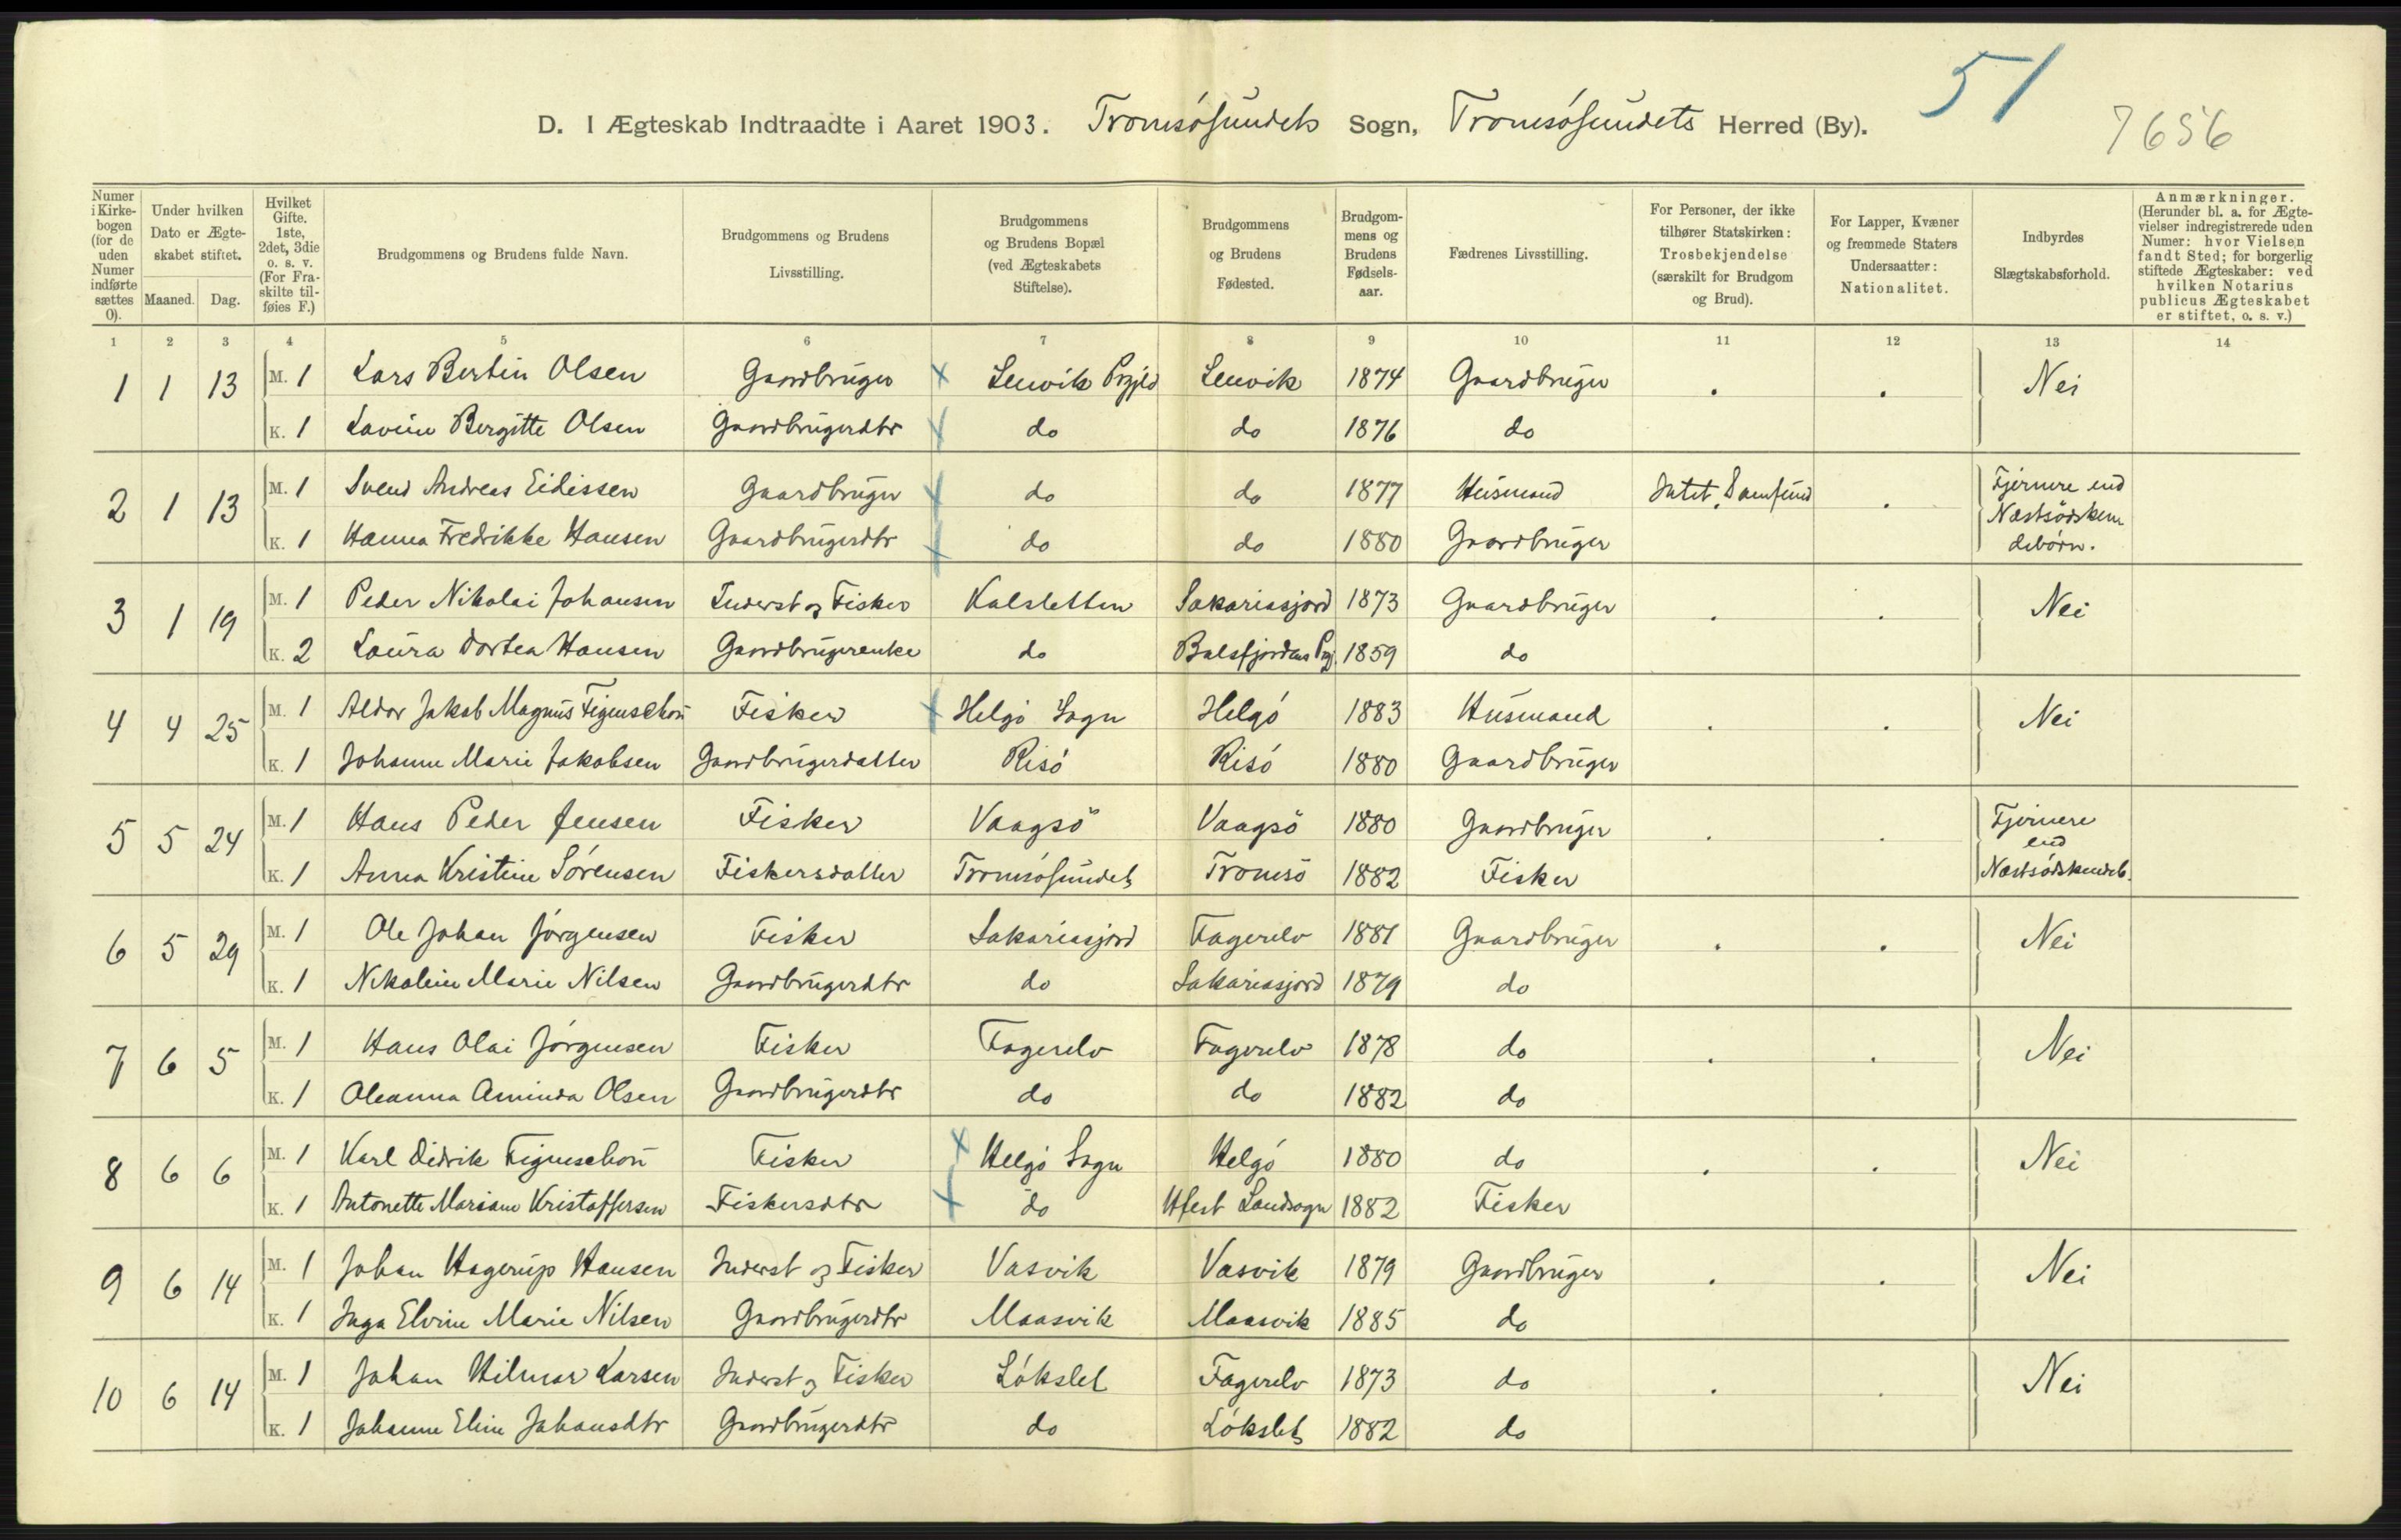 51
7656
D. I Ægteskab Indtraadte i Aaret 1903. Tromsøsundets Sogn, Tromsøsundets Herred (By).
Numer i Kirkebogen (for de uden Numer indførte sættes 0).
Under hvilken Dato er Ægteskabet stiftet.
Maaned. Dag.
Hvilket Gifte. 1ste, 2det, 3die o. s. v. (For Fraskilte tilføies F.)
Brudgommens og Brudens fulde Navn.
Brudgommens og Brudens Livsstilling.
Brudgommens og Brudens Bopæl (ved Ægteskabets Stiftelse).
Brudgommens og Brudens Fødested.
Brudgommens og Brudens Fødselsaar.
Fædrenes Livsstilling.
For Personer, der ikke tilhører Statskirken: Trosbekjendelse (særskilt for Brudgom og Brud).
For Lapper, Kvæner og fremmede Staters Undersaatter: Nationalitet.
Indbyrdes Slægtskabsforhold.
Anmærkninger. (Herunder bl. a. for Ægtevielser indregistrerede uden Numer: hvor Vielsen fandt Sted; for borgerlig stiftede Ægteskaber: ved hvilken Notarius publicus Ægteskabet er stiftet, o. s. v.)
1 2 3 4 5 6 7 8 9 10 11 12 13 14
1 1 13 M. 1 Lars Bertin Olsen Gaardbruger x Lenvik Prgjld Lenvik 1874 Gaardbruger . . Nei
K. 1 Lavine Bergitte Olsen Gaardbrugerdtr x do do 1876 do
2 1 13 M. 1 Svend Andreas Eidissen Gaardbruger x do do 1877 Husmand Intet Samfund . Fjernere end Næstsødskendebørn.
K. 1 Hanna Fredrikke Hansen Gaardbrugerdtr x do do 1880 Gaardbruger
3 1 19 M. 1 Peder Nikolai Johansen Inderst og Fisker Kalsletten Sakariasjord 1873 Gaardbruger . . Nei
K. 2 Laura Dortea Hansen Gaardbrugerenke do Balsfjordens Prgj. 1859 do
4 4 25 M. 1 Aldor Jakob Magnus Figenschou Fisker x Helgø Sogn Helgø 1883 Husmand . . Nei
K. 1 Johanne Marie Jakobsen Gaardbrugerdatter Risø Risø 1880 Gaardbruger
5 5 24 M. 1 Hans Peder Jensen Fisker Vaagsö Vaagsö 1880 Gaardbruger . . Fjernere end Næstsødskendeb.
K. 1 Anna Kristine Sørensen Fiskersdatter Tromsøsundets Tromsö 1882 Fisker
6 5 29 M. 1 Ole Johan Jørgensen Fisker Sakariasjord Fagerelv 1881 Gaardbruger . . Nei
K. 1 Nikoline Marie Nilsen Gaardbrugerdtr do Sakariasjord 1879 do
7 6 5 M. 1 Hans Olai Jørgensen Fisker Fagerelv Fagerelv 1878 do . . Nei
K. 1 Oleanna Aminda Olsen Gaardbrugerdtr do do 1882 do
8 6 6 M. 1 Karl Didrik Figenschou Fisker x Helgø Sogn Helgø 1880 do . . Nei
K. 1 Antonette Mariane Kristoffersen Fiskersdtr x do Hfest Landsogn 1882 Fisker
9 6 14 M. 1 Johan Hagerup Hansen Inderst og Fisker Vasvik Vasvik 1879 Gaardbruger . . Nei
K. 1 Inga Elvine Marie Nilsen Gaardbrugerdtr Maasvik Maasvik 1885 do
10 6 14 M. 1 Johan Hilmar Larsen Inderst og Fisker Løkslet Fagerelv 1873 do . . Nei
K. 1 Johanne Eline Johansdtr Gaardbrugerdtr do Løkslet 1882 do